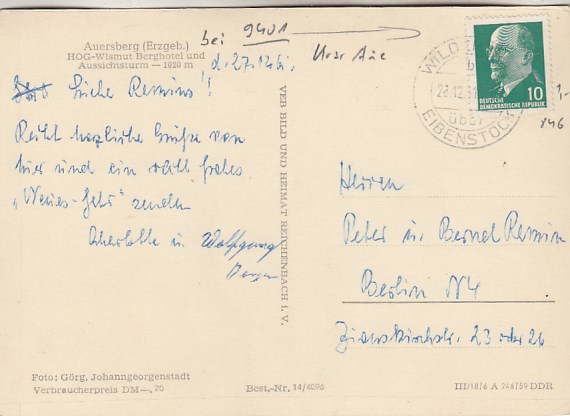 Auersberg (Erzgeb.)
HOG-Wismut Berghotel und
Aussichtsturm — 1020 m
bei 9401
d. 27.12.61
Aue
Liebe Remins!
Recht herzliche Grüße von
hier und ein recht frohes
„Neues-Jahr" senden
Charlotte u. Wolfgang
VEB BILD UND HEIMAT REICHENBACH I. V.
WILD
28.12.61
über
EIBENSTOCK
10
DEUTSCHE
DEMOKRATISCHE REPUBLIK
1,-
Herren
Peter u. Bernd Remin
Berlin N4
Zionskirchstr. 23 oder 26
Foto: Görg, Johanngeorgenstadt
Verbraucherpreis DM —,20
Best.-Nr. 14/4096
III/18/6 A 246/59 DDR